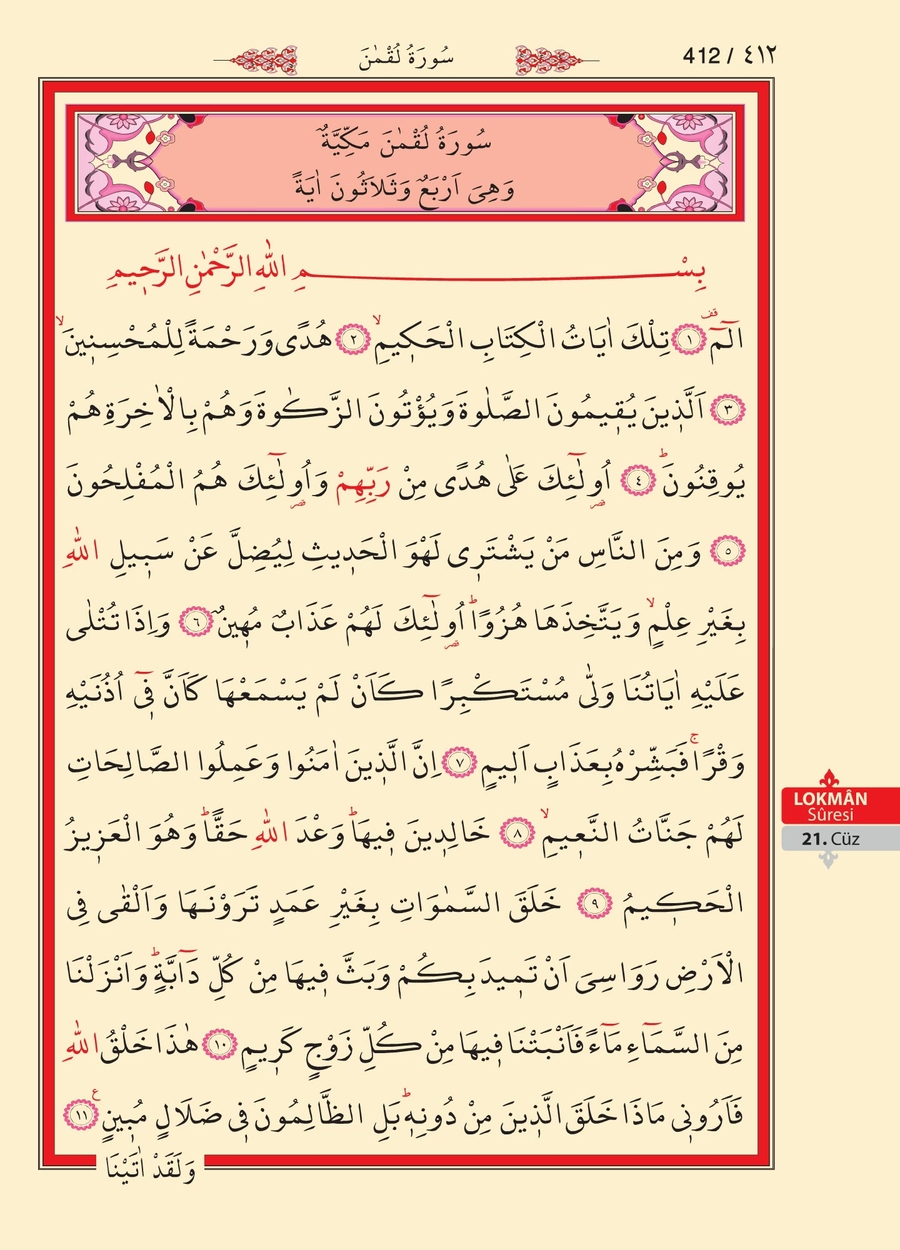 سُورَةُ لُقْمٰنَ
412 / ٤١٢
سُورَةُ لُقْمٰنَ مَكِّيَّةٌ
وَهِىَ اَرْبَعٌ وَثَلَاثُونَ اٰيَةً
بِسْمِ اللّٰهِ الرَّحْمٰنِ الرَّحٖيمِ
الٓمٓ ﴿١﴾ تِلْكَ اٰيَاتُ الْكِتَابِ الْحَكٖيمِ ﴿٢﴾ هُدًى وَرَحْمَةً لِلْمُحْسِنٖينَ
﴿٣﴾ اَلَّذٖينَ يُقٖيمُونَ الصَّلٰوةَ وَيُؤْتُونَ الزَّكٰوةَ وَهُمْ بِالْاٰخِرَةِ هُمْ
يُوقِنُونَ ﴿٤﴾ اُو۬لٰٓئِكَ عَلٰى هُدًى مِنْ رَبِّهِمْ وَاُو۬لٰٓئِكَ هُمُ الْمُفْلِحُونَ
﴿٥﴾ وَمِنَ النَّاسِ مَنْ يَشْتَرٖى لَهْوَ الْحَدٖيثِ لِيُضِلَّ عَنْ سَبٖيلِ اللّٰهِ
بِغَيْرِ عِلْمٍ وَيَتَّخِذَهَا هُزُوًا اُو۬لٰٓئِكَ لَهُمْ عَذَابٌ مُهٖينٌ ﴿٦﴾ وَاِذَا تُتْلٰى
عَلَيْهِ اٰيَاتُنَا وَلّٰى مُسْتَكْبِرًا كَاَنْ لَمْ يَسْمَعْهَا كَاَنَّ فٖٓى اُذُنَيْهِ
وَقْرًا فَبَشِّرْهُ بِعَذَابٍ اَلٖيمٍ ﴿٧﴾ اِنَّ الَّذٖينَ اٰمَنُوا وَعَمِلُوا الصَّالِحَاتِ
لَهُمْ جَنَّاتُ النَّعٖيمِ ﴿٨﴾ خَالِدٖينَ فٖيهَا وَعْدَ اللّٰهِ حَقًّا وَهُوَ الْعَزٖيزُ
الْحَكٖيمُ ﴿٩﴾ خَلَقَ السَّمٰوَاتِ بِغَيْرِ عَمَدٍ تَرَوْنَهَا وَاَلْقٰى فِى
الْاَرْضِ رَوَاسِىَ اَنْ تَمٖيدَ بِكُمْ وَبَثَّ فٖيهَا مِنْ كُلِّ دَٓابَّةٍ وَاَنْزَلْنَا
مِنَ السَّمَٓاءِ مَٓاءً فَاَنْبَتْنَا فٖيهَا مِنْ كُلِّ زَوْجٍ كَرٖيمٍ ﴿١٠﴾ هٰذَا خَلْقُ اللّٰهِ
فَاَرُونٖى مَاذَا خَلَقَ الَّذٖينَ مِنْ دُونِهٖ بَلِ الظَّالِمُونَ فٖى ضَلَالٍ مُبٖينٍ ﴿١١﴾
وَلَقَدْ اٰتَيْنَا
LOKMÂN
Sûresi
21. Cüz